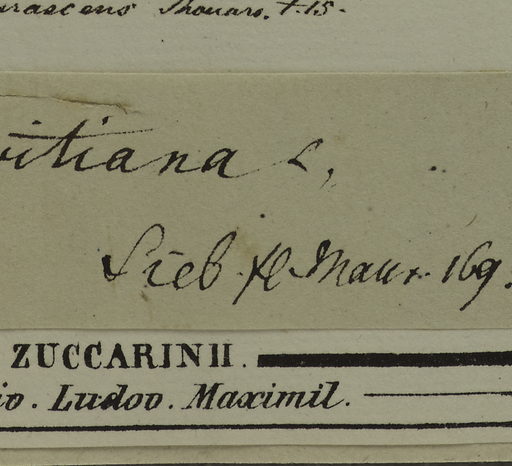 rascens Thouars. t. 15.
itiana L,
Sieb. Fl. Maur. 169.
ZUCCARINII.
io. Ludov. Maximil.